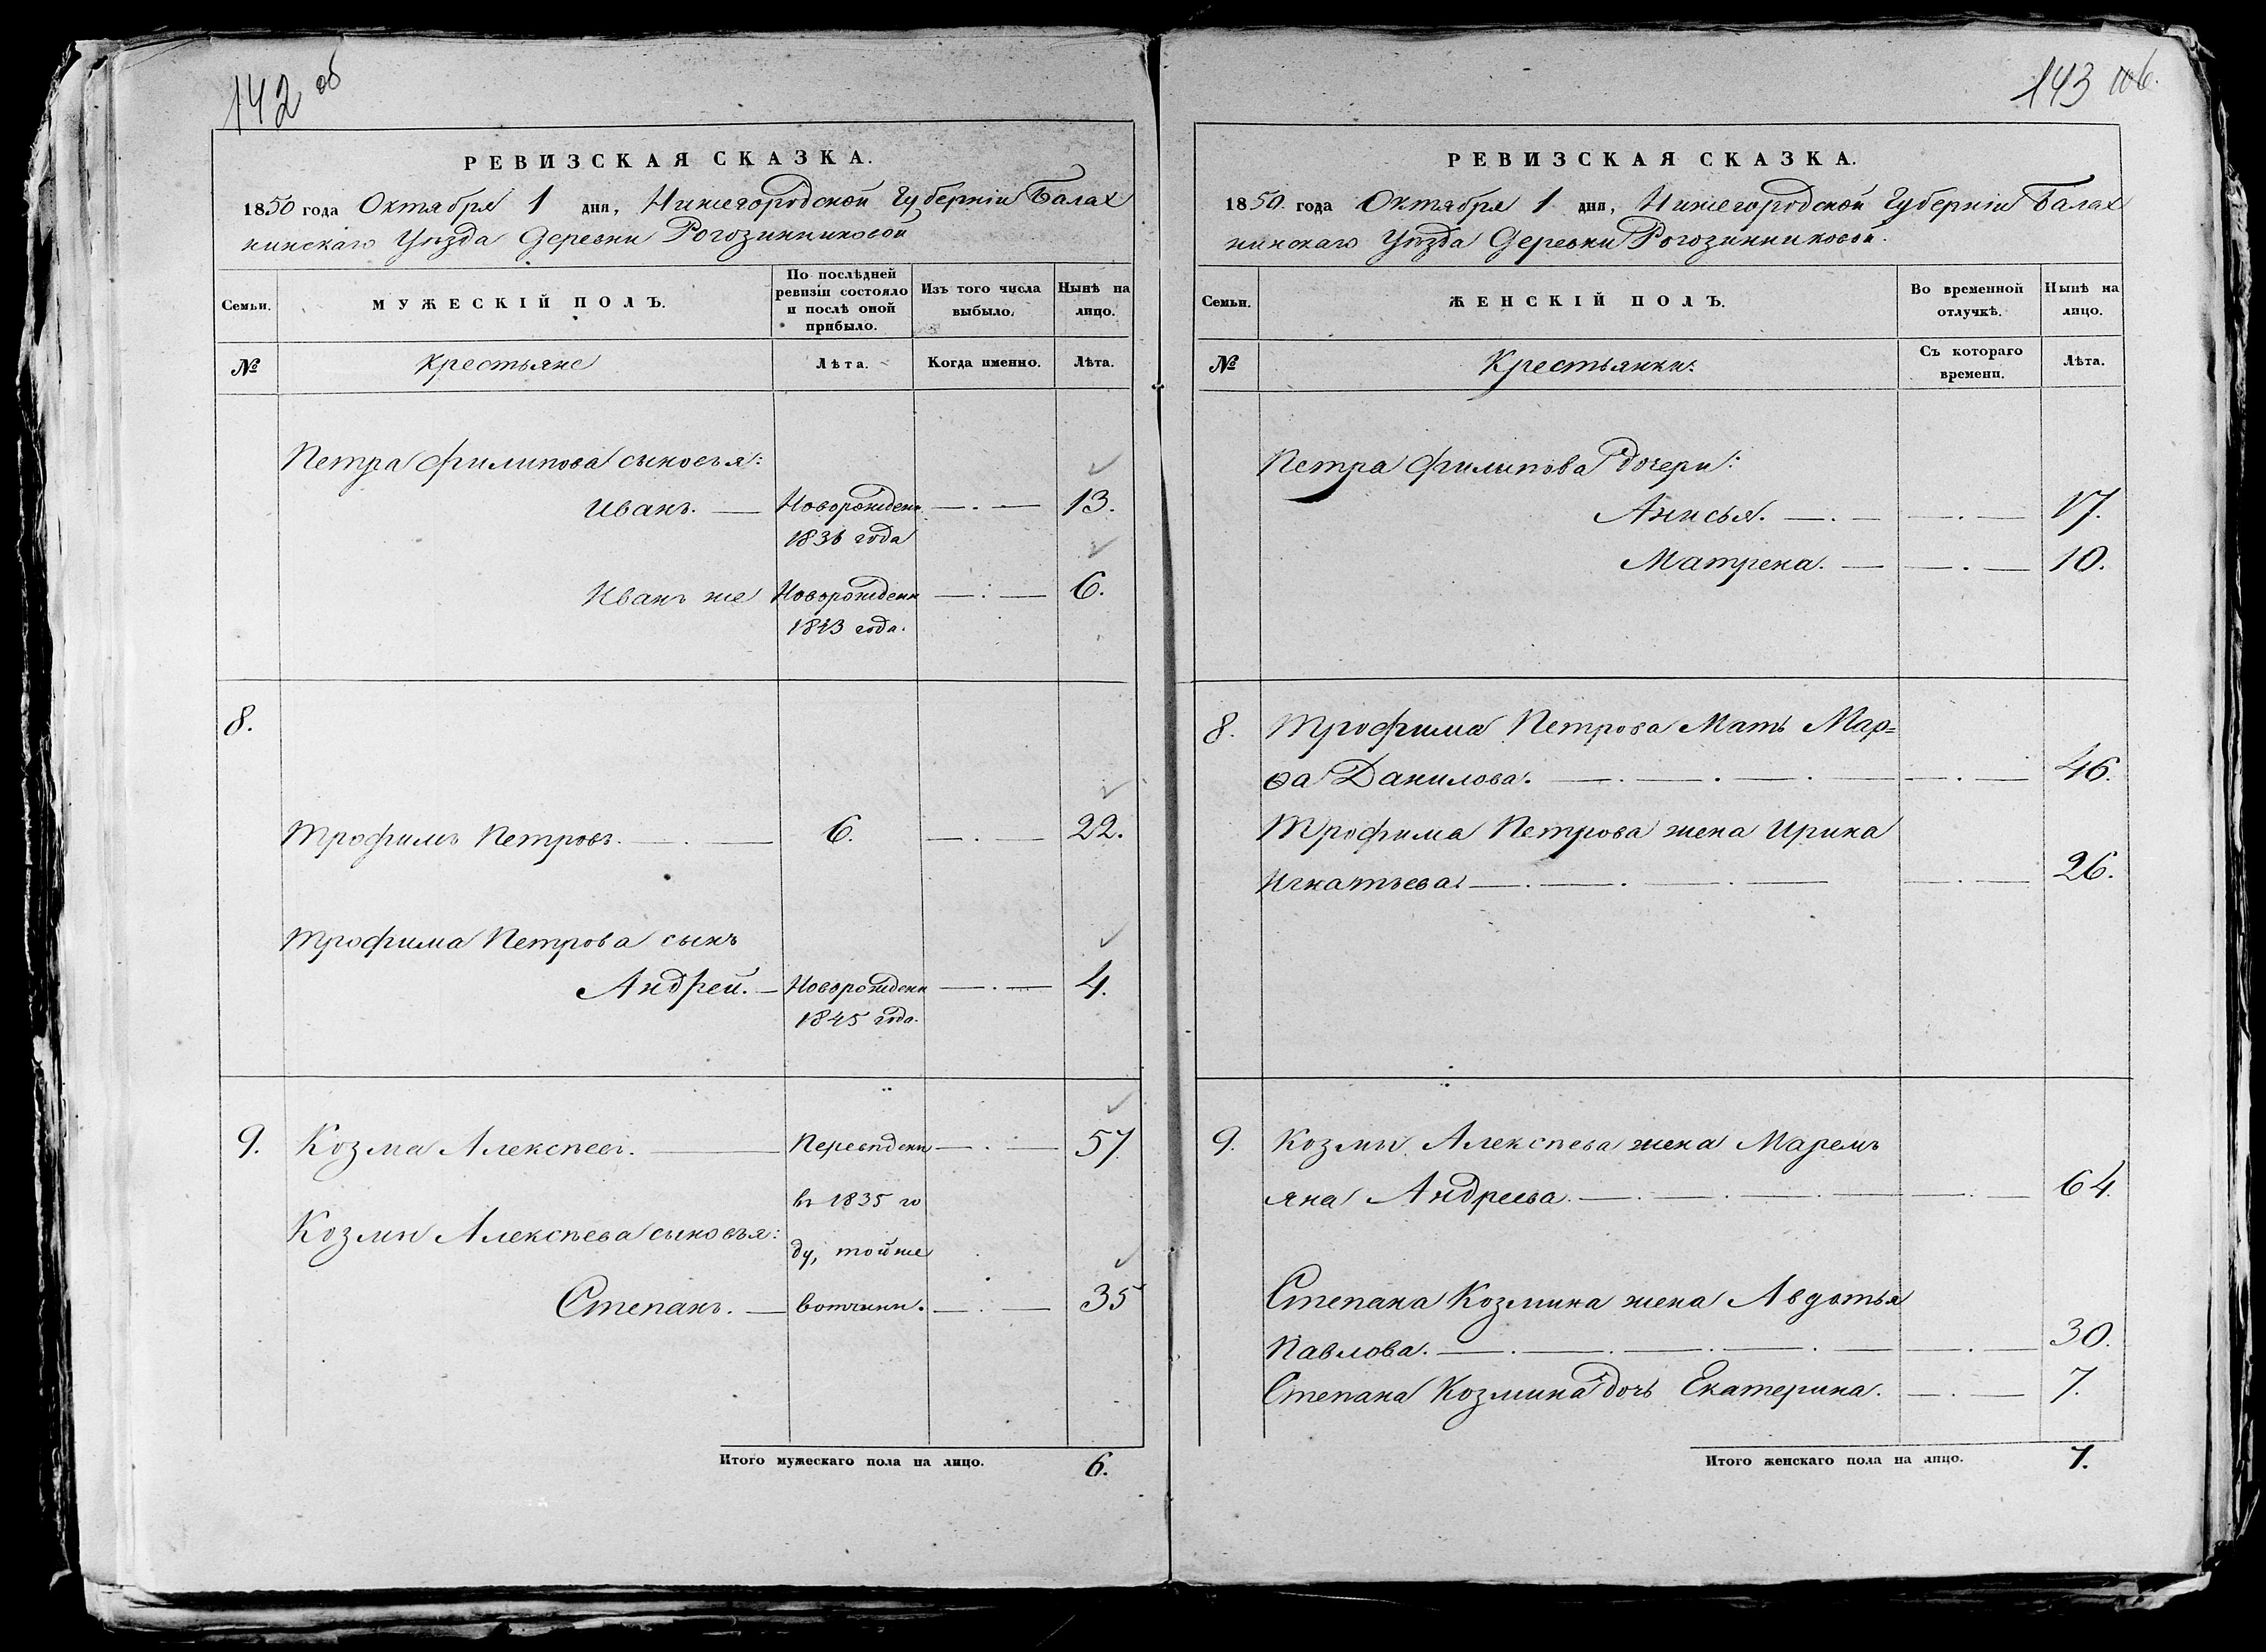 142 об
РЕВИЗСКАЯ СКАЗКА.
1850 года Октября 1 дня, Нижегородской Губерніи Балах
нинскаго Уѣзда Деревни Рогозинниковой
Семьи.
МУЖЕСКІЙ ПОЛЪ.
По послѣдней
ревизіи состояло
и послѣ оной
прибыло.
Изъ того числа
выбыло.
Нынѣ на
лицо.
№
Крестьяне
Лѣта.
Когда именно.
Лѣта.
Петра Филипова сыновья:
Иванъ. — Новорожден. — . — 13.
1836 года
Иванъ же Новорожденн — . — 6.
1843 года.
8.
Трофимъ Петровъ. — . — 6. — . — 22.
Трофима Петрова сынъ
Андрей. — Новорожденн — . — 4.
1845 года.
9. Козма Алексѣев. — Переведенн — . — 57
въ 1835 го
Козмы Алексѣева сыновья:
ду, тойже
Степанъ. — вотчины. — . — 35
Итого мужескаго пола на лицо. 6.
143 106.
РЕВИЗСКАЯ СКАЗКА.
1850 года Октября 1 дня, Нижегородской Губерніи Балах
нинскаго Уѣзда Деревни Рогозинниковой.
Семьи.
ЖЕНСКІЙ ПОЛЪ.
Во временной
отлучкѣ.
Нынѣ на
лицо.
№
Крестьянки.
Съ котораго
времени.
Лѣта.
Петра Филипова дочери:
Анисья. — . — — . — 17.
Матрена. — — . — 10.
8. Трофима Петрова Мать Мар=
ѳа Данилова. — . — . — . — . — 46.
Трофима Петрова жена Ирина
Игнатьева. — . — . — . — — . — 26.
9. Козмы Алексѣева жена Маремь
яна Андреева. — . — . — . — . — 64.
Степана Козмина жена Авдотья
Павлова. — . — . — . — . — — . — 30.
Степана Козмина дочь Екатерина. — . — 7.
Итого женскаго пола на лицо. 7.